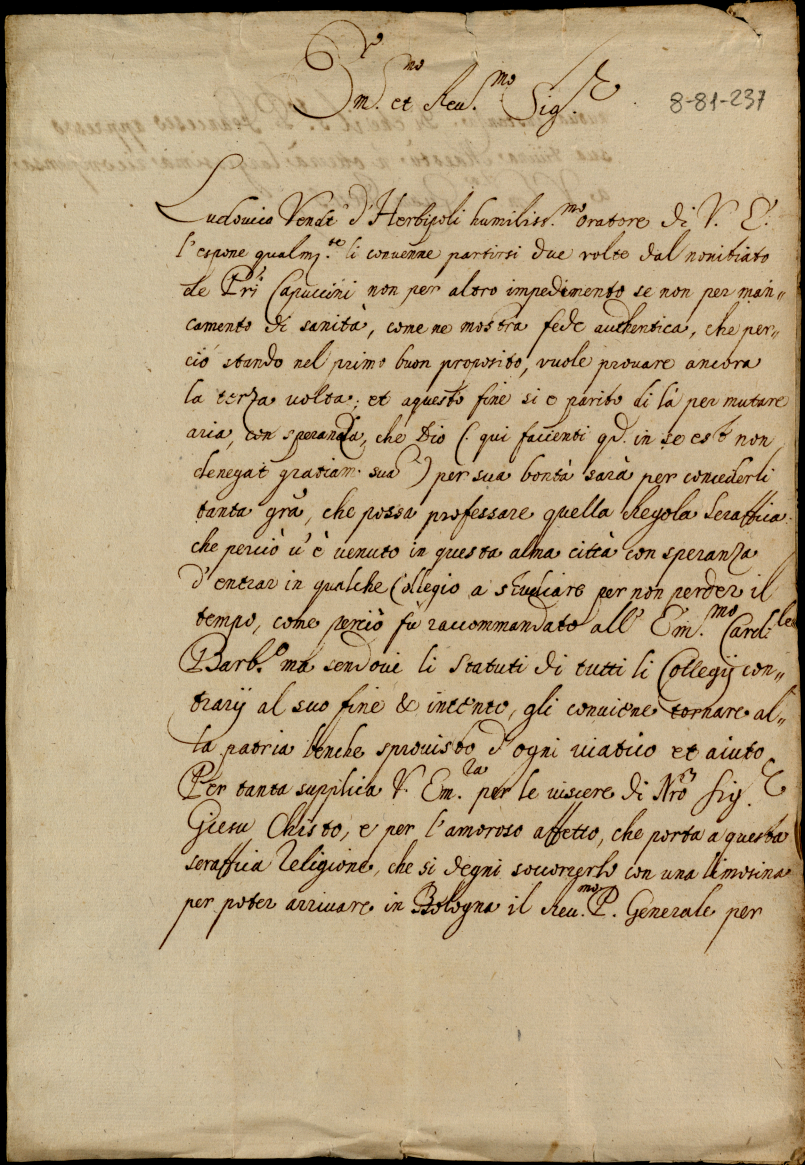 Em.mo et Reu.mo Sig.re
8-81-237
Ludouico Vende d'Herbipoli humiliss.mo oratore di V. E.
l'espone qualm.te li conuenne partirsi due volte dal nouitiato
de Pri Capuccini non per altro impedimento se non per man„
camento di sanità, come ne mostra fede authentica, che per„
ciò stando nel primo buon proposito, vuole prouare ancora
la terza uolta; et aquesto fine si è partito di là per mutare
aria, con speranza, che Dio (: qui facienti qd. in se est non
denegat gratiam sua) per sua bontà sarà per concederli
tanta gra, che possa professare quella Regola Seraffica.
che perciò u'è uenuto in questa alma città con speranza
d'entrar in qualche Collegio a studiare per non perder il
tempo, come perciò fù raccommandato all' Em.mo Cardi.le
Barb.o ma sendoui li statuti di tutti li Collegij con„
trarij al suo fine & intento, gli conuiene tornare al„
la patria benche sprouisto d'ogni uiatico et aiuto
Per tanta supplica V. Em.za per le uiscere di Nro Sig.re
Giesu Christo, e per l'amoroso affetto, che porta a questa
seraffica religione, che si degni soccorrerlo con una limosina
per poter arriuare in Bologna il Reu.mo P. Generale per